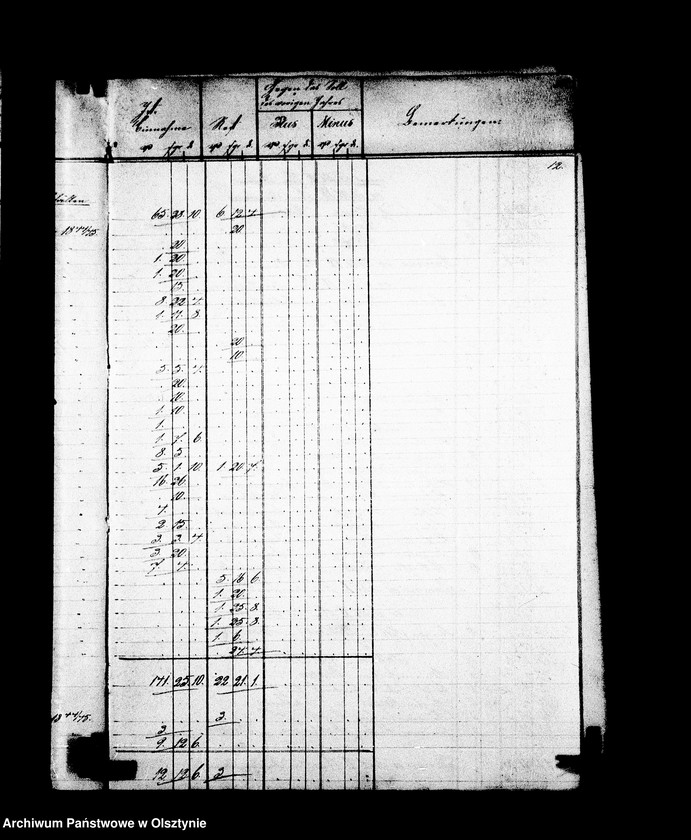 Gegen das Soll
des vorigen Jahres
Ist
Einnahme Rest Plus Minus Bemerkungen
12.
65. 28. 10. 6. 12 4
1874/75. 20
20.
1. 20.
1. 20.
15.
8. 22. 4.
1. 7. 8.
20.
20
10
5. 4.
20.
10.
1. 10.
1.
1. 7. 6.
8. 5.
5. 1. 10. 1. 20 4
16. 26.
10.
4.
2. 15.
3. 3. 4
3. 20.
7. 4.
5. 16 6
1. 20.
1. 25. 8.
1. 25. 8.
1. 6.
171. 25. 10. 22 21. 1
1874/75. 3.
3.
9. 12 6.
12. 12 6. 3
Archiwum Państwowe w Olsztynie